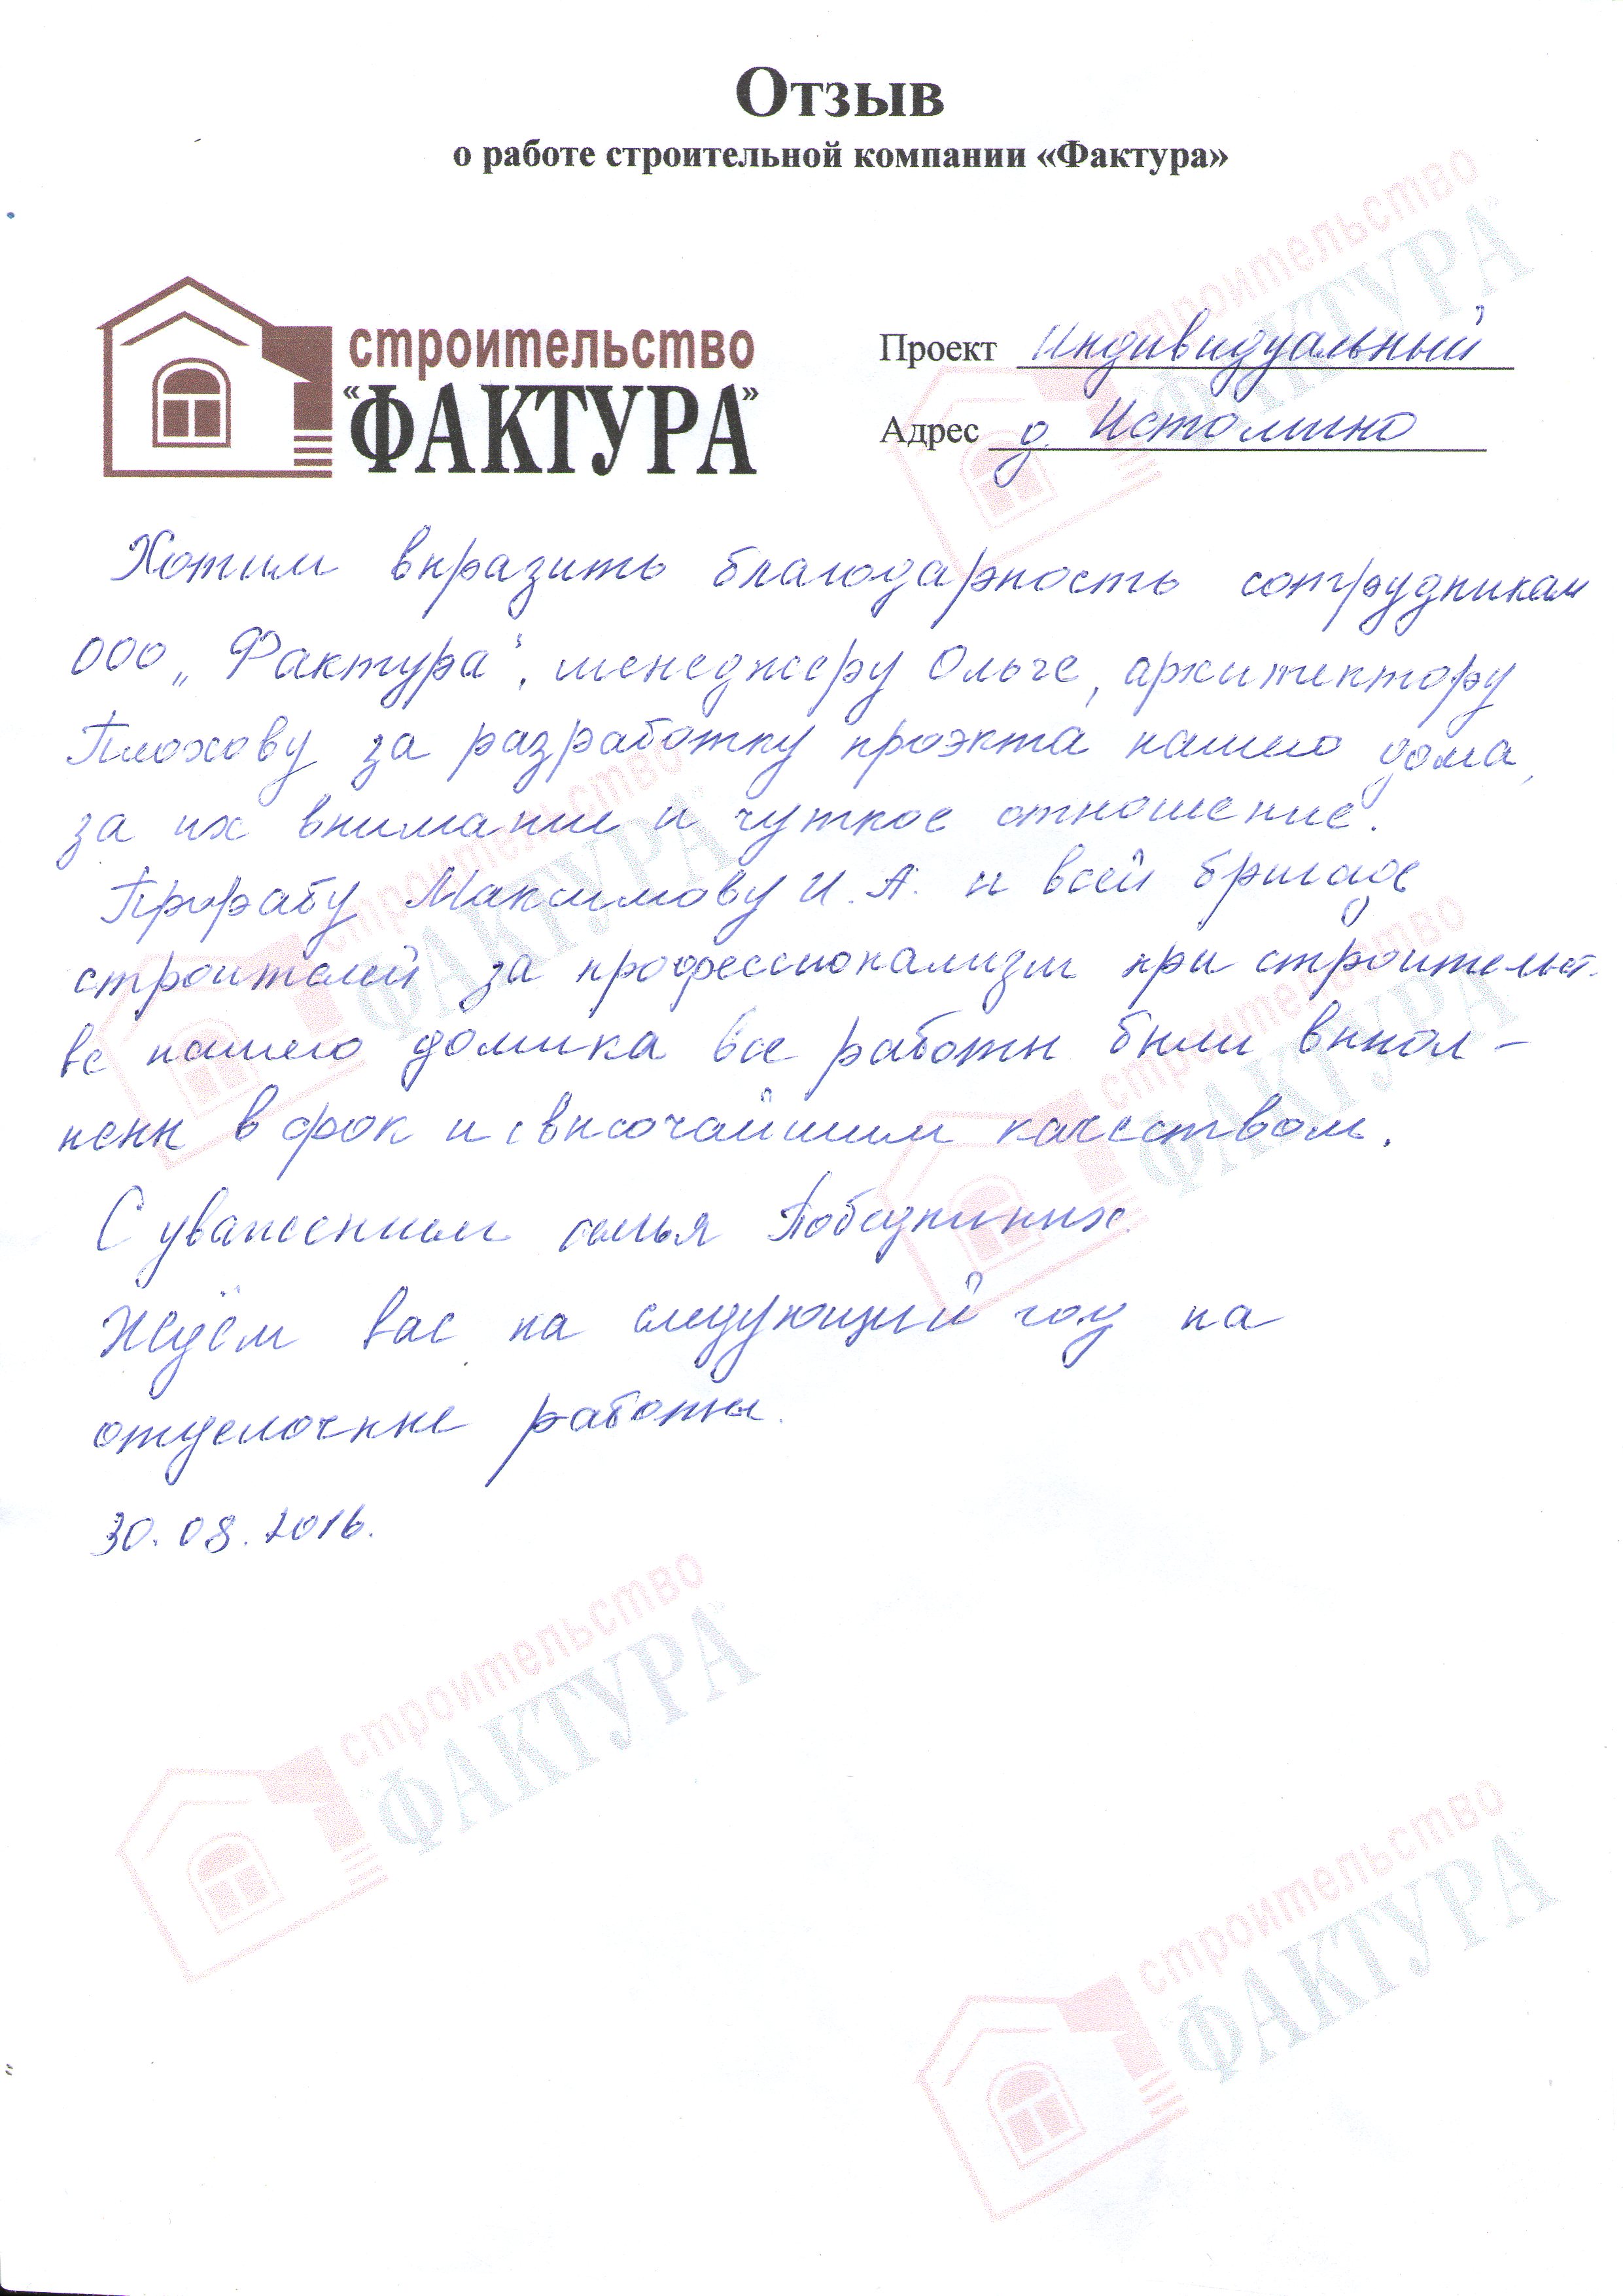 Отзыв
о работе строительной компании «Фактура»
строительство
"ФАКТУРА"
Проект Индивидуальный
Адрес д. Истомино
Хотим выразить благодарность сотрудникам
ООО „Фактура“, менеджеру Ольге, архитектору
Плохову за разработку проэкта нашего дома,
за их внимание и чуткое отношение.
Прорабу Максимову И. А. и всей бригаде
строителей за профессионализм при строительст-
ве нашего домика все работы были выпол-
нены в срок и с высочайшим качеством.
С уважением семья Победниных.
Ждём вас на следующий год на
отделочные работы.
30.08.2016.
строительство
"ФАКТУРА"
строительство
"ФАКТУРА"
строительство
"ФАКТУРА"
строительство
"ФАКТУРА"
строительство
"ФАКТУРА"